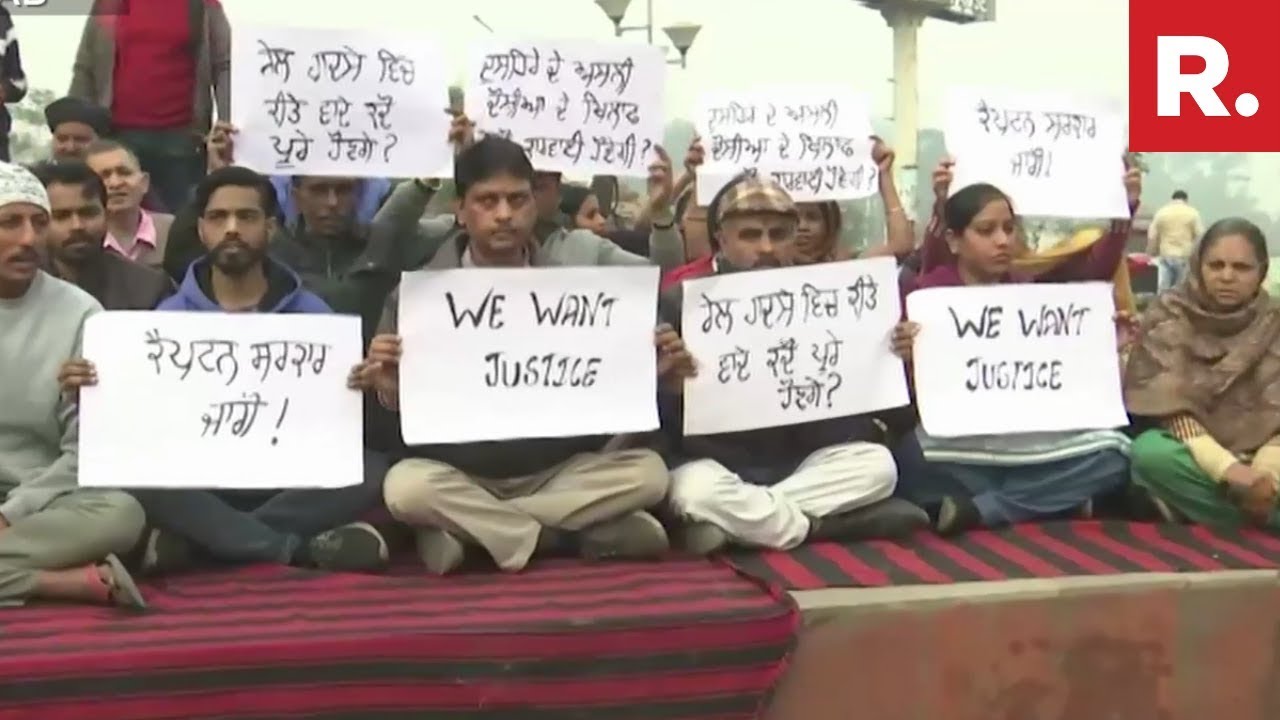 ਰੇਲ ਹਾਦਸੇ ਵਿਚ
ਕੀਤੇ ਵਾਦੇ ਕਦੋਂ
ਪੂਰੇ ਹੋਣਗੇ?
ਦੁਸਹਿਰੇ ਦੇ ਅਸਲੀ
ਦੋਸੀਆ ਦੇ ਖਿਲਾਫ
ਹੋਵੇਗੀ?
ਦੁਸਹਿਰੇ ਦੇ ਅਸਲੀ
ਦੋਸੀਆ ਦੇ ਖਿਲਾਫ
ਹੋਵੇਗੀ?
ਕੈਪਟਨ ਸਰਕਾਰ
ਜਾਗੋ!
R.
ਕੈਪਟਨ ਸਰਕਾਰ
ਜਾਗੋ!
WE WANT
JUSTICE
ਰੇਲ ਹਾਦਸੇ ਵਿਚ ਕੀਤੇ
ਵਾਦੇ ਕਦੋਂ ਪੂਰੇ
ਹੋਣਗੇ?
WE WANT
JUSTICE